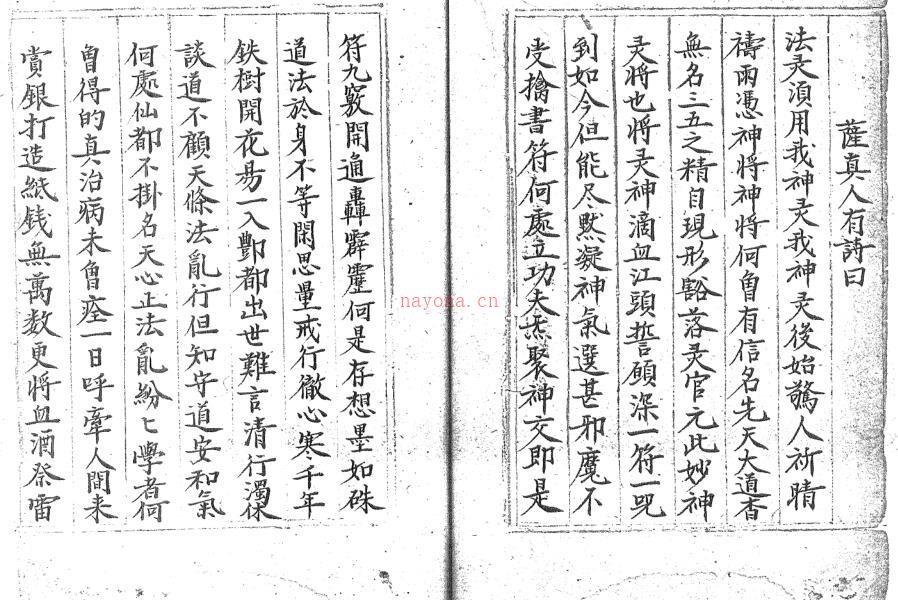 薩真人有詩曰
法灵須用我神灵我神灵後始驚人祈晴
禱雨憑神將神將何曾有信名先天大道杳
無名三五之精自現形豁落灵官元此妙神
灵將也將灵神滴血江頭誓願深一符一呪
到如今但能尽默凝神氣選甚邪魔不
受擒書符何處立功夫炁聚神交即是
符九竅開通轟霹靂何是存想墨如硃
道法於身不等閑思量戒行徹心寒千年
鉄樹開花易一入酆都出世難言清行濁休
談道不顧天條法亂行但知守道安和氣
何處仙都不掛名天心正法亂紛匕學者何
曾得的真治病未曾痊一日呼牽人間来
賞銀打造紙銭無萬数更將血酒祭雷
nayona.cn